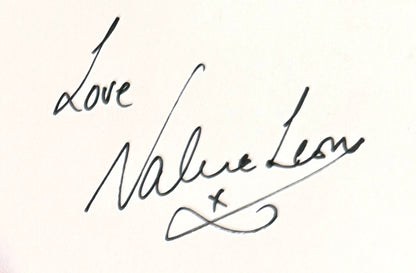 Love
Valerie Leon
x